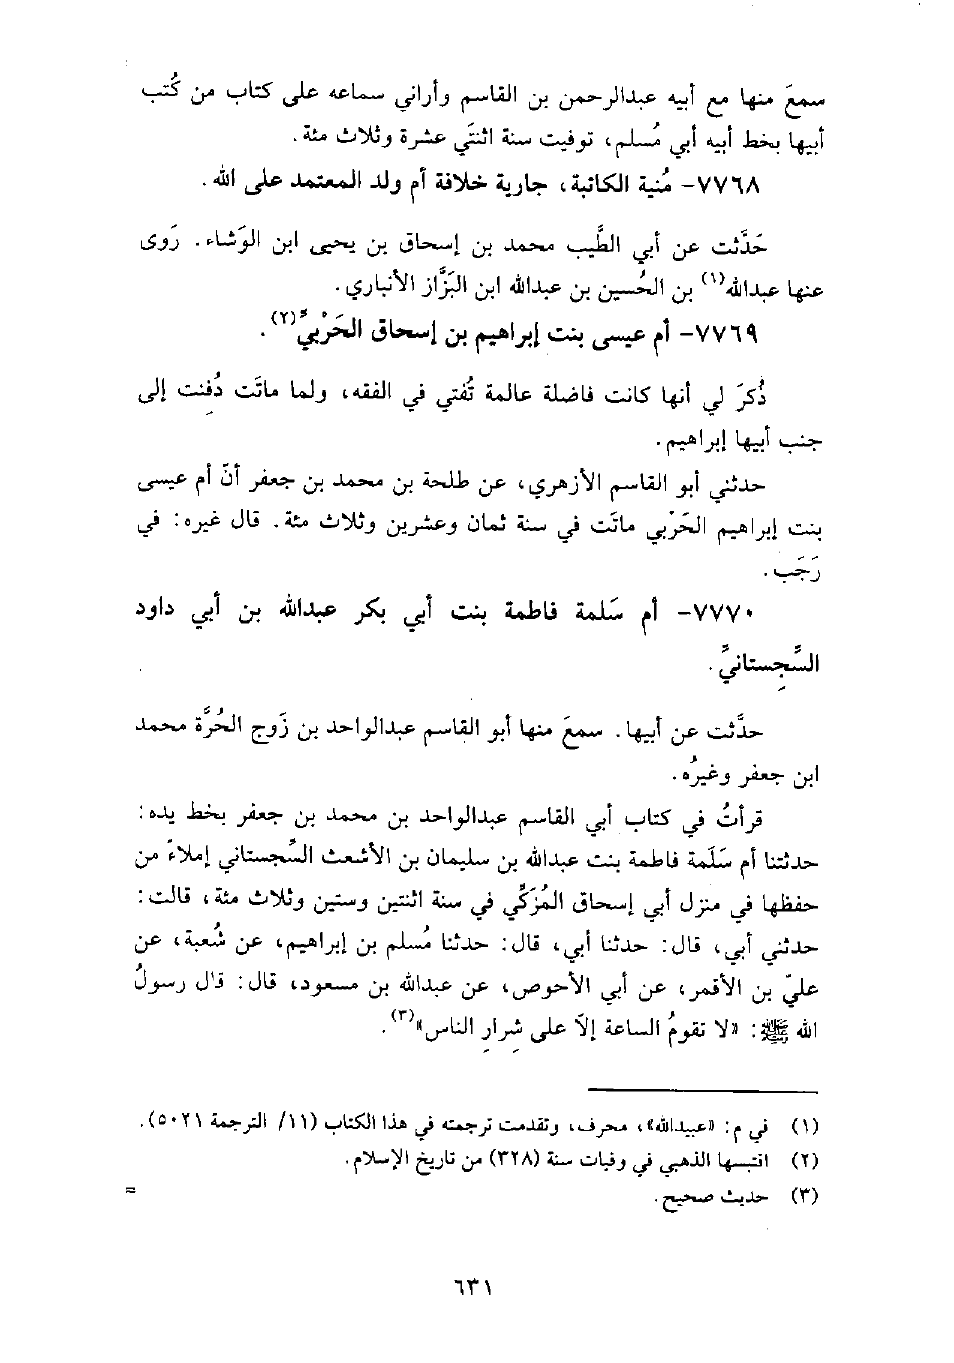 سمعَ منها مع أبيه عبدالرحمن بن القاسم وأراني سماعه على كتاب من كُتب
أبيها بخط أبيه أبي مُسلم، توفيت سنة اثنتَي عشرة وثلاث مئة.
٧٧٦٨- مُنية الكاتبة، جارية خلافة أم ولد المعتمد على الله.
حَدَّثت عن أبي الطَّيب محمد بن إسحاق بن يحيى ابن الوَشاء. رَوى
عنها عبدالله(١) بن الحُسين بن عبدالله ابن البَزَّاز الأنباري.
٧٧٦٩- أم عيسى بنت إبراهيم بن إسحاق الحَرْبيِّ(٢).
ذُكِرَ لي أنها كانت فاضلة عالمة تُفتي في الفقه، ولما ماتَت دُفِنت إلى
جنب أبيها إبراهيم.
حدثني أبو القاسم الأزهري، عن طلحة بن محمد بن جعفر أنّ أم عيسى
بنت إبراهيم الحَرْبي ماتَت في سنة ثمان وعشرين وثلاث مئة. قال غيره: في
رَجَب.
٧٧٧٠- أم سَلمة فاطمة بنت أبي بكر عبدالله بن أبي داود
السِّجِستانيِّ.
حدَّثت عن أبيها. سمعَ منها أبو القاسم عبدالواحد بن زَوج الحُرَّة محمد
ابن جعفر وغيرُه.
قرأتُ في كتاب أبي القاسم عبدالواحد بن محمد بن جعفر بخط يده:
حدثتنا أم سَلَمة فاطمة بنت عبدالله بن سليمان بن الأشعث السِّجستاني إملاءً من
حفظها في منزل أبي إسحاق المُزَكِّي في سنة اثنتين وستين وثلاث مئة، قالت:
حدثني أبي، قال: حدثنا أبي، قال: حدثنا مُسلم بن إبراهيم، عن شُعبة، عن
عليّ بن الأقمر، عن أبي الأحوص، عن عبدالله بن مسعود، قال: قال رسولُ
الله ﷺ: «لا تقومُ الساعة إلاّ على شِرارِ الناس»(٣).
(١) في م: «عبيدالله»، محرف، وتقدمت ترجمته في هذا الكتاب (١١/ الترجمة ٥٠٢١).
(٢) اقتبسها الذهبي في وفيات سنة (٣٢٨) من تاريخ الإسلام.
(٣) حديث صحيح. =
٦٣١